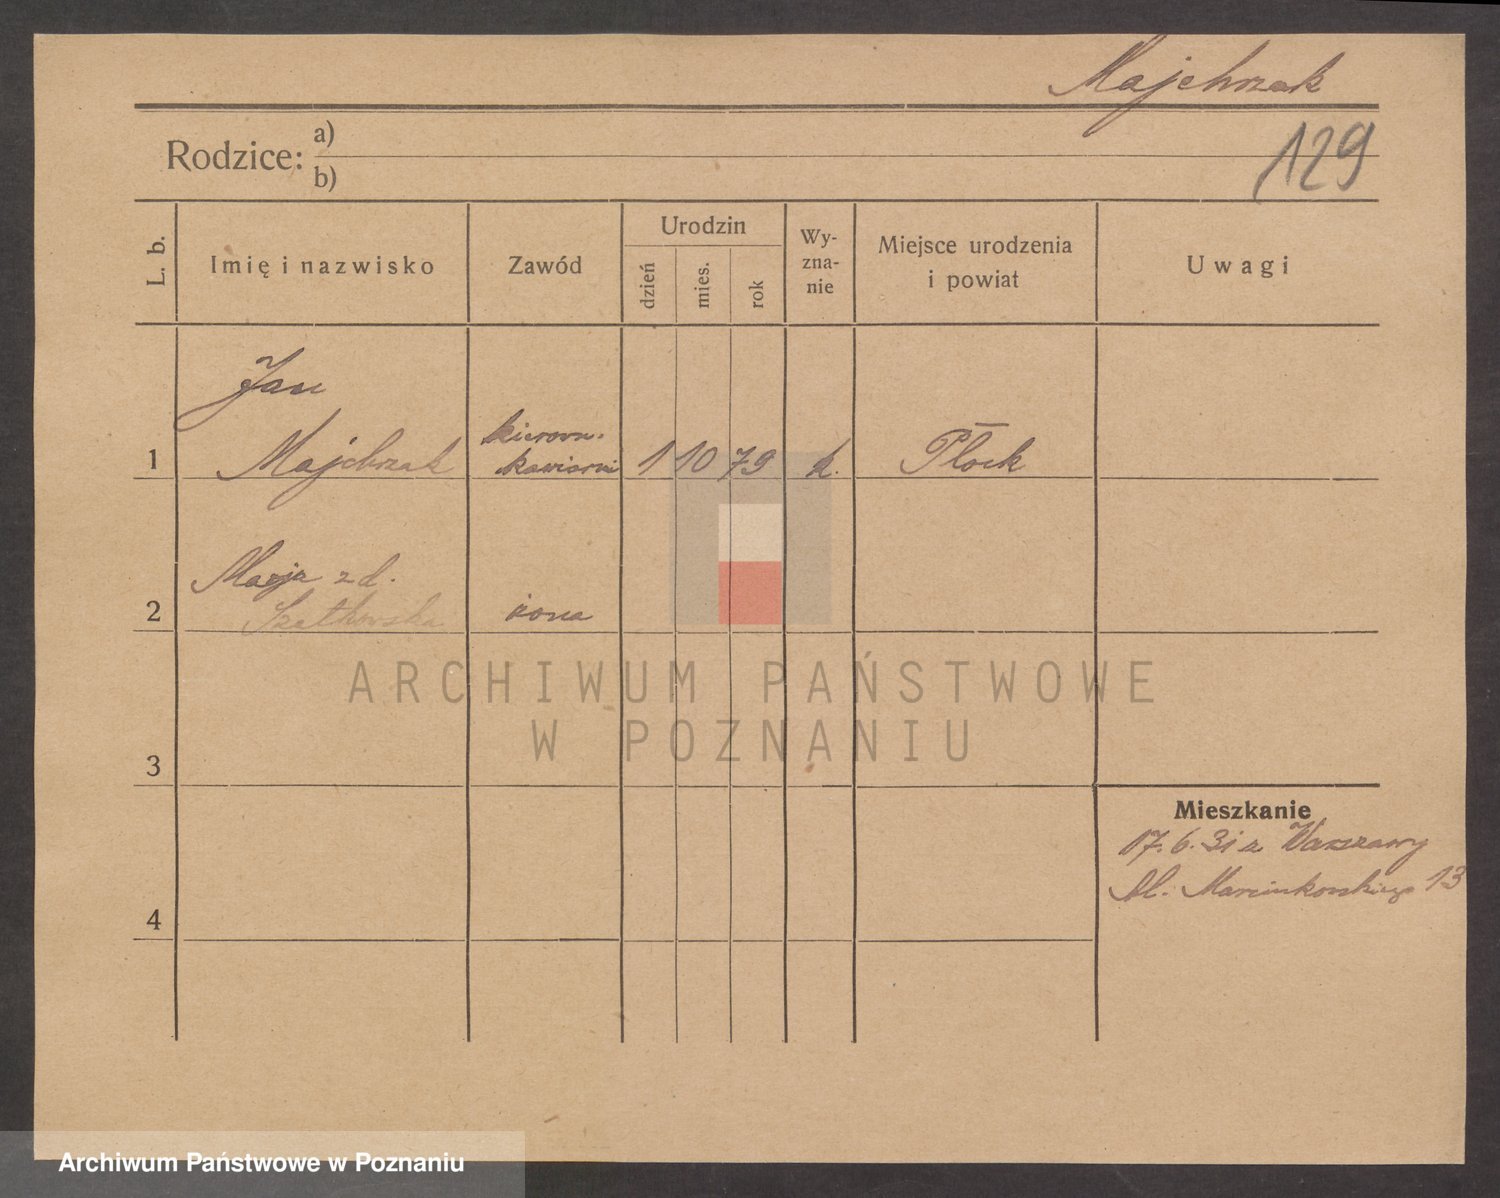 Majchrzak
129
Rodzice: a)
b)
L. b.
Imię i nazwisko
Zawód
Urodzin
dzień
mies.
rok
Wy-
zna-
nie
Miejsce urodzenia
i powiat
Uwagi
Jan
kierown.
1 Majchrzak kawiarni 1 10 79 k. Płock
Marja z d.
2 Szatkowska żona
ARCHIWUM PAŃSTWOWE
W POZNANIU
3
Mieszkanie
17.6.31 z Warszawy
Al. Marcinkowskiego 13
4
Archiwum Państwowe w Poznaniu